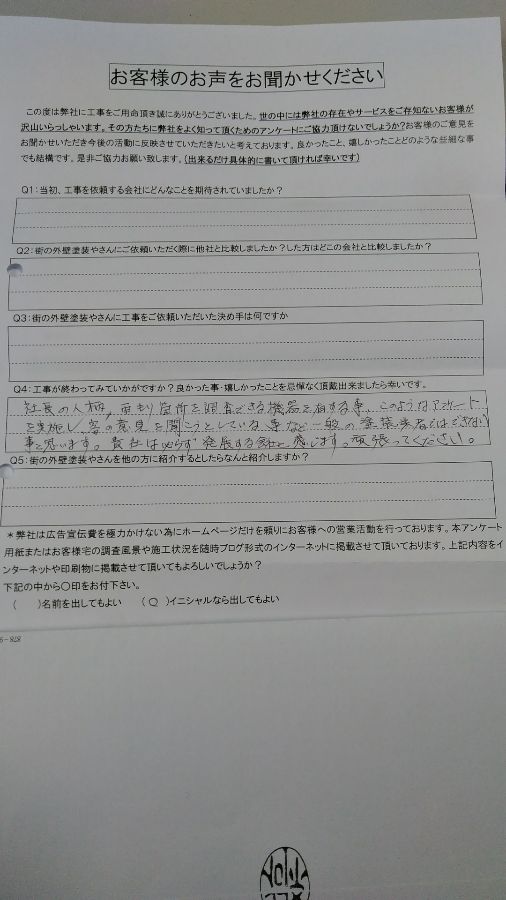 お客様のお声をお聞かせください
この度は弊社に工事をご用命頂き誠にありがとうございました。世の中には弊社の存在やサービスをご存知ないお客様が
沢山いらっしゃいます。その方たちに弊社をよく知って頂くためのアンケートにご協力頂けないでしょうか?お客様のご意見を
お聞かせいただき今後の活動に反映させていただきたいと考えております。良かったこと、嬉しかったことどのような些細な事
でも結構です。是非ご協力お願い致します。(出来るだけ具体的に書いて頂ければ幸いです)
Q1:当初、工事を依頼する会社にどんなことを期待されていましたか?
Q2:街の外壁塗装やさんにご依頼いただく際に他社と比較しましたか?した方はどこの会社と比較しましたか?
Q3:街の外壁塗装やさんに工事をご依頼いただいた決め手は何ですか
Q4:工事が終わってみていかがですか?良かった事・嬉しかったことを忌憚なく頂戴出来ましたら幸いです。
社長の人柄、雨もり箇所を調査できる機器を有する事、このようなアンケート
を実施し、客の意見を聞こうとしている事など一般の塗装業者ではできない
事と思います。貴社は必らず発展する会社と感じます。頑張ってください。
Q5:街の外壁塗装やさんを他の方に紹介するとしたらなんと紹介しますか?
*弊社は広告宣伝費を極力かけない為にホームページだけを頼りにお客様への営業活動を行っております。本アンケート
用紙またはお客様宅の調査風景や施工状況を随時ブログ形式のインターネットに掲載させて頂いております。上記内容をイ
ンターネットや印刷物に掲載させて頂いてもよろしいでしょうか?
下記の中から○印をお付下さい。
( )名前を出してもよい (○)イニシャルなら出してもよい